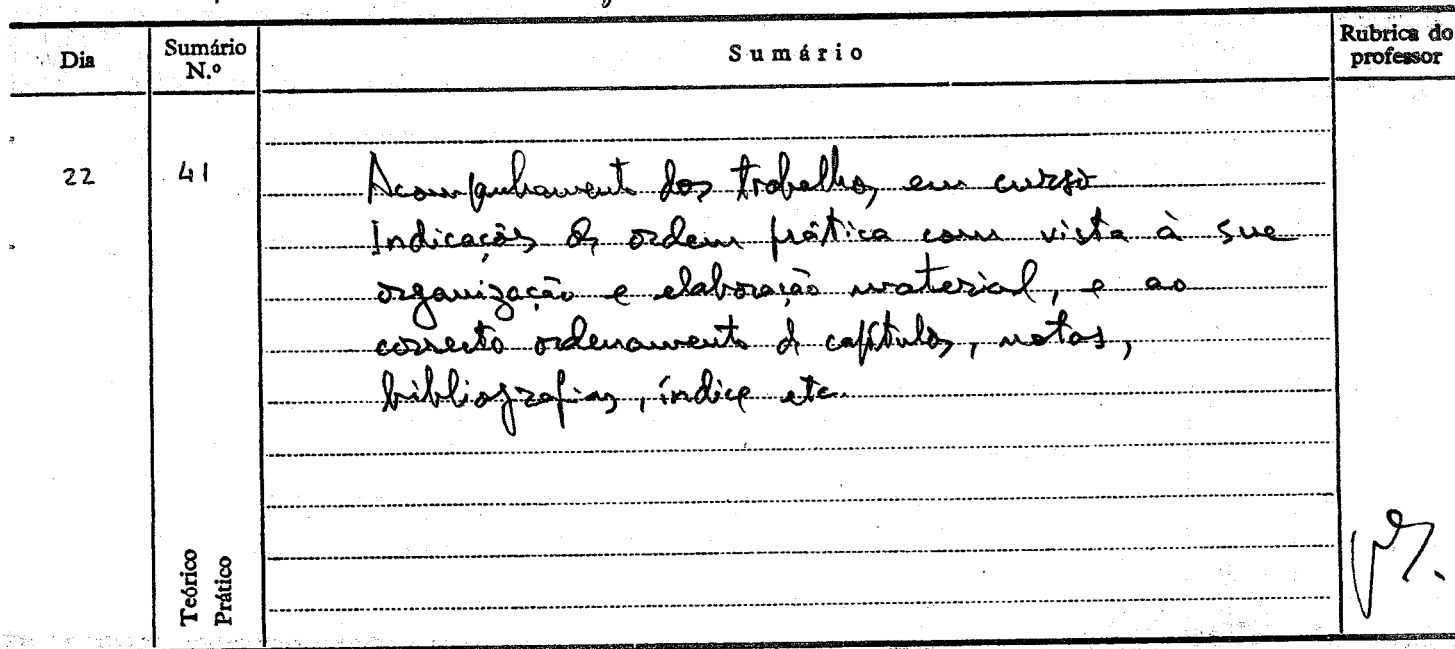 Dia
Sumário N.º
Sumário
Rubrica do professor
22
41
Acompanhamento dos trabalhos em curso
Indicações de ordem prática com vista à sua
organização e elaboração material, e ao
correcto ordenamento de capítulos, notas,
bibliografias, índice etc.
Teórico
Prático